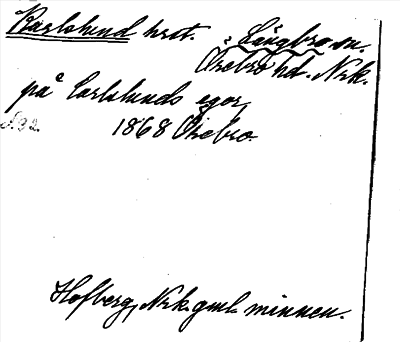 Karlslund hrst. i Längbro sn.
Örebro hd. Nrk.
på Carlslunds egor,
s. 32. 1868 Örebro.
Hofberg, Nrk. gml. minnen.